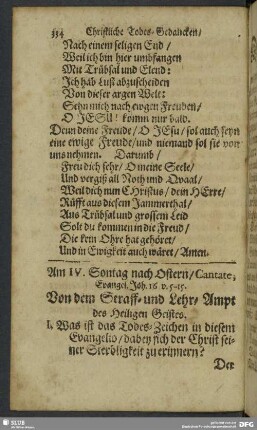 334 Christliche Todes-Gedancken/
Nach einem seligen End/
Weil ich bin hier umbfangen
Mit Trübsal und Elend:
Ich hab Lust abzuscheiden
Von dieser argen Welt:
Sehn mich nach ewgen Freuden/
O JESU! komm nur bald.
Denn deine Freude/ O JEsu/ sol auch seyn
eine ewige Freude/und niemand sol sie von
uns nehmen. Darumb/
Freu dich sehr/ O meine Seele/
Und vergiß all Noth und Qwaal/
Weil dich nun CHristus/ dein HErre/
Rüfft aus diesem Jammerthal/
Aus Trübsal und grossem Leid
Solt du kommen in die Freud/
Die kein Ohre hat gehöret/
Und in Ewigkeit auch wäret/ Amen.
Am IV. Sontag nach Ostern/ Cantate,
Evangel. Joh. 16 v. 5-15.
Von dem Straff- und Lehr-Ampt
des Heiligen Geistes.
I. Was ist das Todes-Zeichen in diesem
Evangelio/ dabey sich der Christ sei-
ner Sterbligkeit zu erinnern?
Der
SLUB
DFG